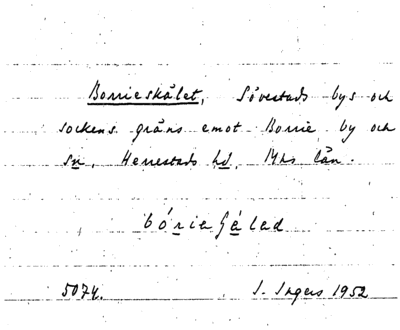 Borrieskålet, Sövestads bys och
sockens gräns emot Borrie by och
sn, Herrestads hd, Mhs län.
5074. I. Ingers 1952